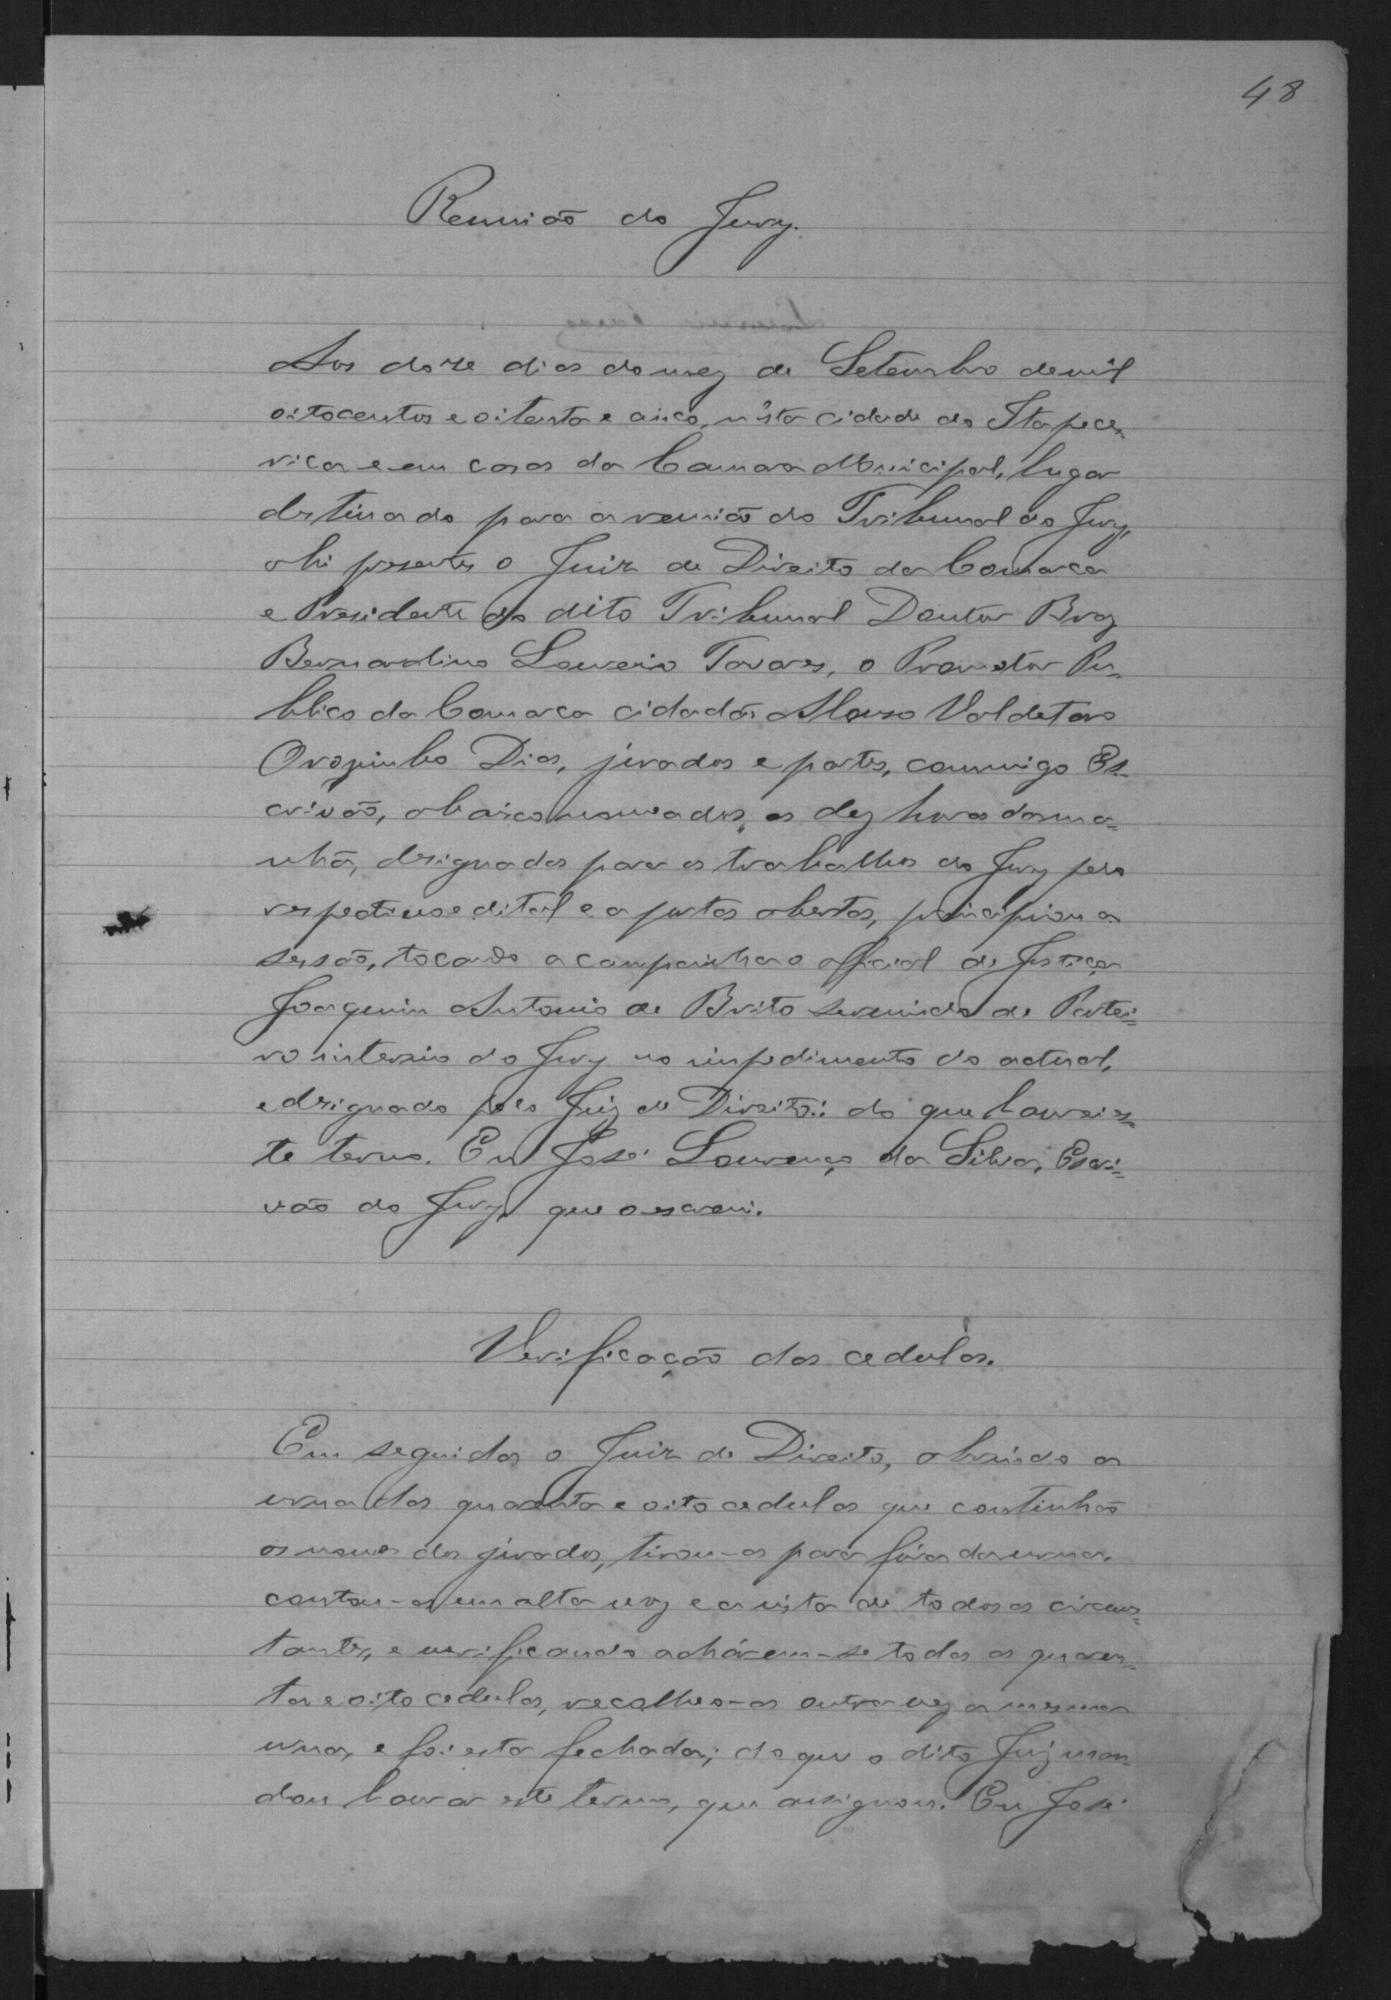 48
Reunião do Jury.
Aos doze dias do mez de Setembro de mil
oitocentos e oitenta e cinco, n'esta cidade de Itapece=
rica e em casa da Camara Municipal, lugar
destinado para a reunião do Tribunal do Jury,
ahi presentes o Juiz de Direito da Comarca
e Presidente do dito Tribunal Doutor Braz
Bernardino Loureiro Tavares, o Promotor Pu=
blico da Comarca cidadão Valdetaro
Dias, jurados e partes, commigo Es=
crivão, abaixo nomeados, as dez horas da ma=
nhã, designadas para os trabalhos do Jury pelo
respectivo edital e a portas abertas, principiou a
sessão, tocando a campainha o official de Justiça
Joaquim Antonio de Brito servindo de Portei=
ro interino do Jury no impedimento do actual,
e designado pelo Juiz de Direito: do que lavrei es=
te termo. Eu José Lourenço da Silva, Escri=
vão do Jury que o escrevi.
Verificação das cedulas.
Em seguida o Juiz de Direito, abrindo a
urna das quarenta e oito cedulas que continhão
os nomes dos jurados, tirou-as para fóra da urna,
contou-as em alta voz e a vista de todos os circuns=
tantes, e verificando achárem-se todas as quaren=
ta e oito cedulas, recolheo-as outra vez a mesma
urna, e foi esta fechada; do que o dito Juiz man=
dou lavrar este termo, que assignou. Eu José